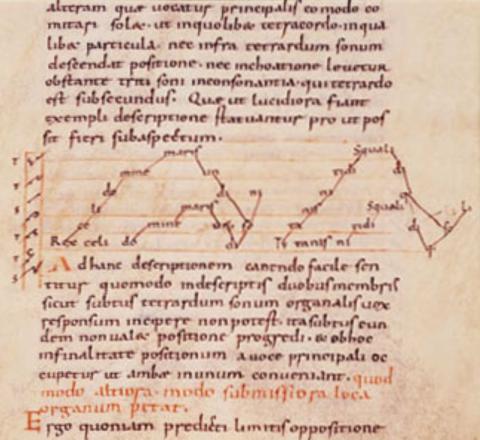 alteram quæ uocatur principalis eo modo co
mitari solet. ut inquolibet tetracordo. inqua
libet particula. nec infra tetrardum sonum
descendat positione. nec inchoatione leuetur
obstante triti soni inconsonantia. qui tetrardo
est subsecundus. Quæ ut lucidiora fiant
exempli descriptione statuantur pro ut pos
sit fieri subaspectum.
maris Squali
mine di ni
do maris Squali
li mine ridi
Rex celi do Ty tanis ni
Ad hanc descriptionem canendo facile sen
titur quomodo indescriptis duobus membris
sicut subtus tetrardum sonum organalis uox
responsum incipere non potest. ita subtus eun
dem non ualet positione progredi. & ob hoc
in finalitate positionum a uoce principali oc
cupetur ut ambæ inunum conueniant. quod
modo altiora. modo submissiora loca
organum petat.
Ergo quoniam predicti limitis oppositione